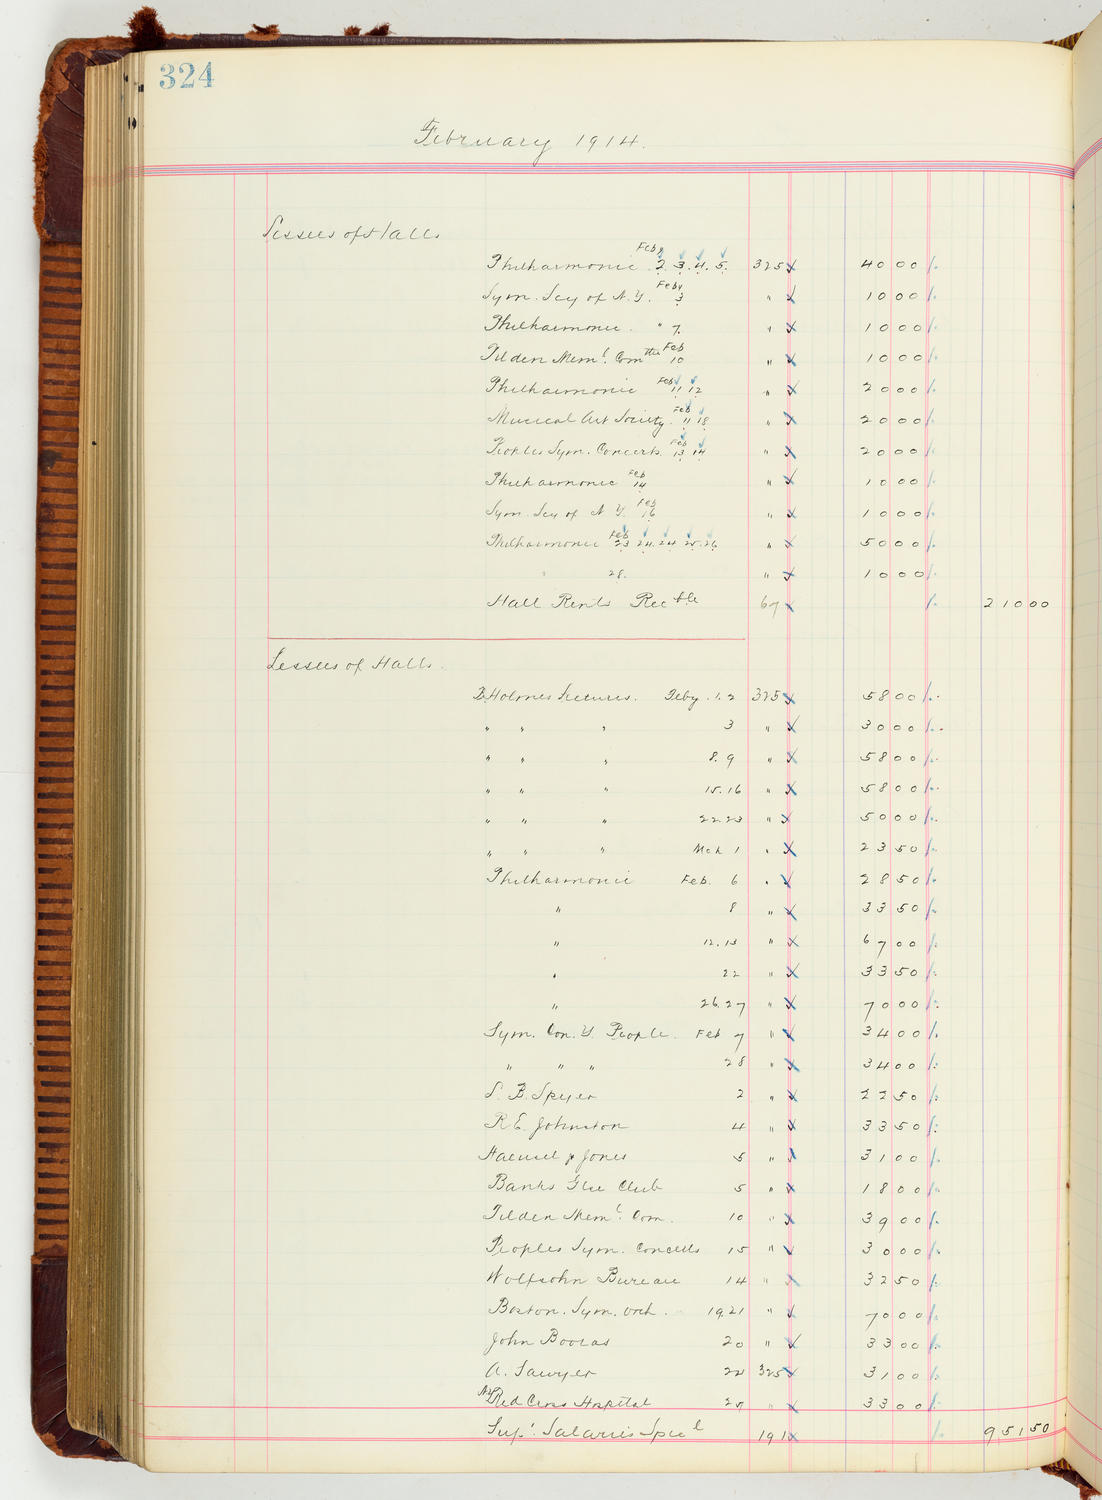 324
February 1914.
Lessees of Halls
Philharmonic Feby 2. 3. 4. 5. 325 40 00
Sym. Scy of N.Y. Feby 3 " 10 00
Philharmonic. " 7. " 10 00
Tilden Meml. Comttee Feb 10 " 10 00
Philharmonic Feb 11 12 " 20 00
Musical Art Society. Feb 11 18 " 20 00
Peoples Sym. Concerts. Feb 13 14 " 20 00
Philharmonic Feb 14 " 10 00
Sym. Scy of N.Y. Feb 16 " 10 00
Philharmonic Feb 23 24. 24 25. 26 " 50 00
" 28. " 10 00
Hall Rents Recble 67 210 00
Lessees of Halls.
B Holmes Lectures. Feby. 1. 2 325 58 00
" " " 3 " 30 00
" " " 8. 9 " 58 00
" " " 15. 16 " 58 00
" " " 22. 23 " 50 00
" " " Mch 1 " 23 50
Philharmonic Feb. 6 " 28 50
" 8 " 33 50
" 12. 13 " 67 00
" 22 " 33 50
" 26. 27 " 70 00
Sym. Con. Y. People. Feb 7 " 34 00
" " " 28 " 34 00
S. B. Spyer 2 " 22 50
R E. Johnston 4 " 33 50
Haensel & Jones 5 " 31 00
Banks Glee Club 5 " 18 00
Tilden Meml. Com. 10 " 39 00
Peoples Sym. Concerts 15 " 30 00
Wolfsohn Bureau 14 " 32 50
Boston. Sym. Orch. 19. 21 " 70 00
John Booras 20 " 33 00
A. Sawyer 22 325 31 00
NY Red Cross Hospital 25 " 33 00
Sup. Salaries Specl 191 951 50